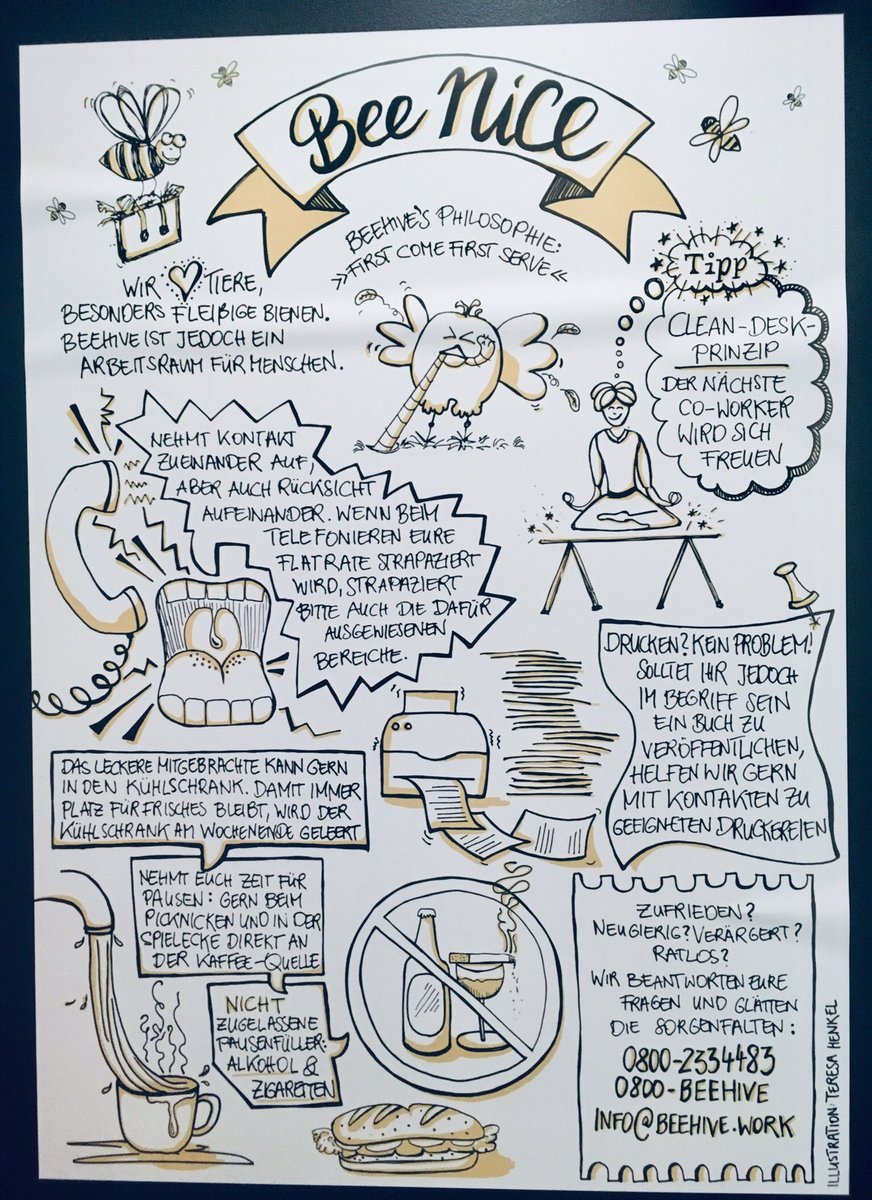 Bee Nice
BEEHIVE'S PHILOSOPHIE:
»FIRST COME FIRST SERVE«
WIR TIERE,
BESONDERS FLEIßIGE BIENEN.
BEEHIVE IST JEDOCH EIN
ARBEITSRAUM FÜR MENSCHEN.
Tipp
CLEAN-DESK-
PRINZIP
DER NÄCHSTE
CO-WORKER
WIRD SICH
FREUEN
NEHMT KONTAKT
ZUEINANDER AUF,
ABER AUCH RÜCKSICHT
AUFEINANDER. WENN BEIM
TELEFONIEREN EURE
FLATRATE STRAPAZIERT
WIRD, STRAPAZIERT
BITTE AUCH DIE DAFÜR
AUSGEWIESENEN
BEREICHE.
DRUCKEN? KEIN PROBLEM!
SOLLTET IHR JEDOCH
IM BEGRIFF SEIN
EIN BUCH ZU
VERÖFFENTLICHEN,
HELFEN WIR GERN
MIT KONTAKTEN ZU
GEEIGNETEN DRUCKEREIEN
DAS LECKERE MITGEBRACHTE KANN GERN
IN DEN KÜHLSCHRANK. DAMIT IMMER
PLATZ FÜR FRISCHES BLEIBT, WIRD DER
KÜHLSCHRANK AM WOCHENENDE GELEERT
NEHMT EUCH ZEIT FÜR
PAUSEN: GERN BEIM
PICKNICKEN UND IN DER
SPIELECKE DIREKT AN
DER KAFFEE-QUELLE
NICHT
ZUGELASSENE
PAUSENFÜLLER:
ALKOHOL &
ZIGARETTEN
ZUFRIEDEN?
NEUGIERIG? VERÄRGERT?
RATLOS?
WIR BEANTWORTEN EURE
FRAGEN UND GLÄTTEN
DIE SORGENFALTEN:
0800-2334483
0800-BEEHIVE
INFO@BEEHIVE.WORK
ILLUSTRATION: TERESA HENKEL